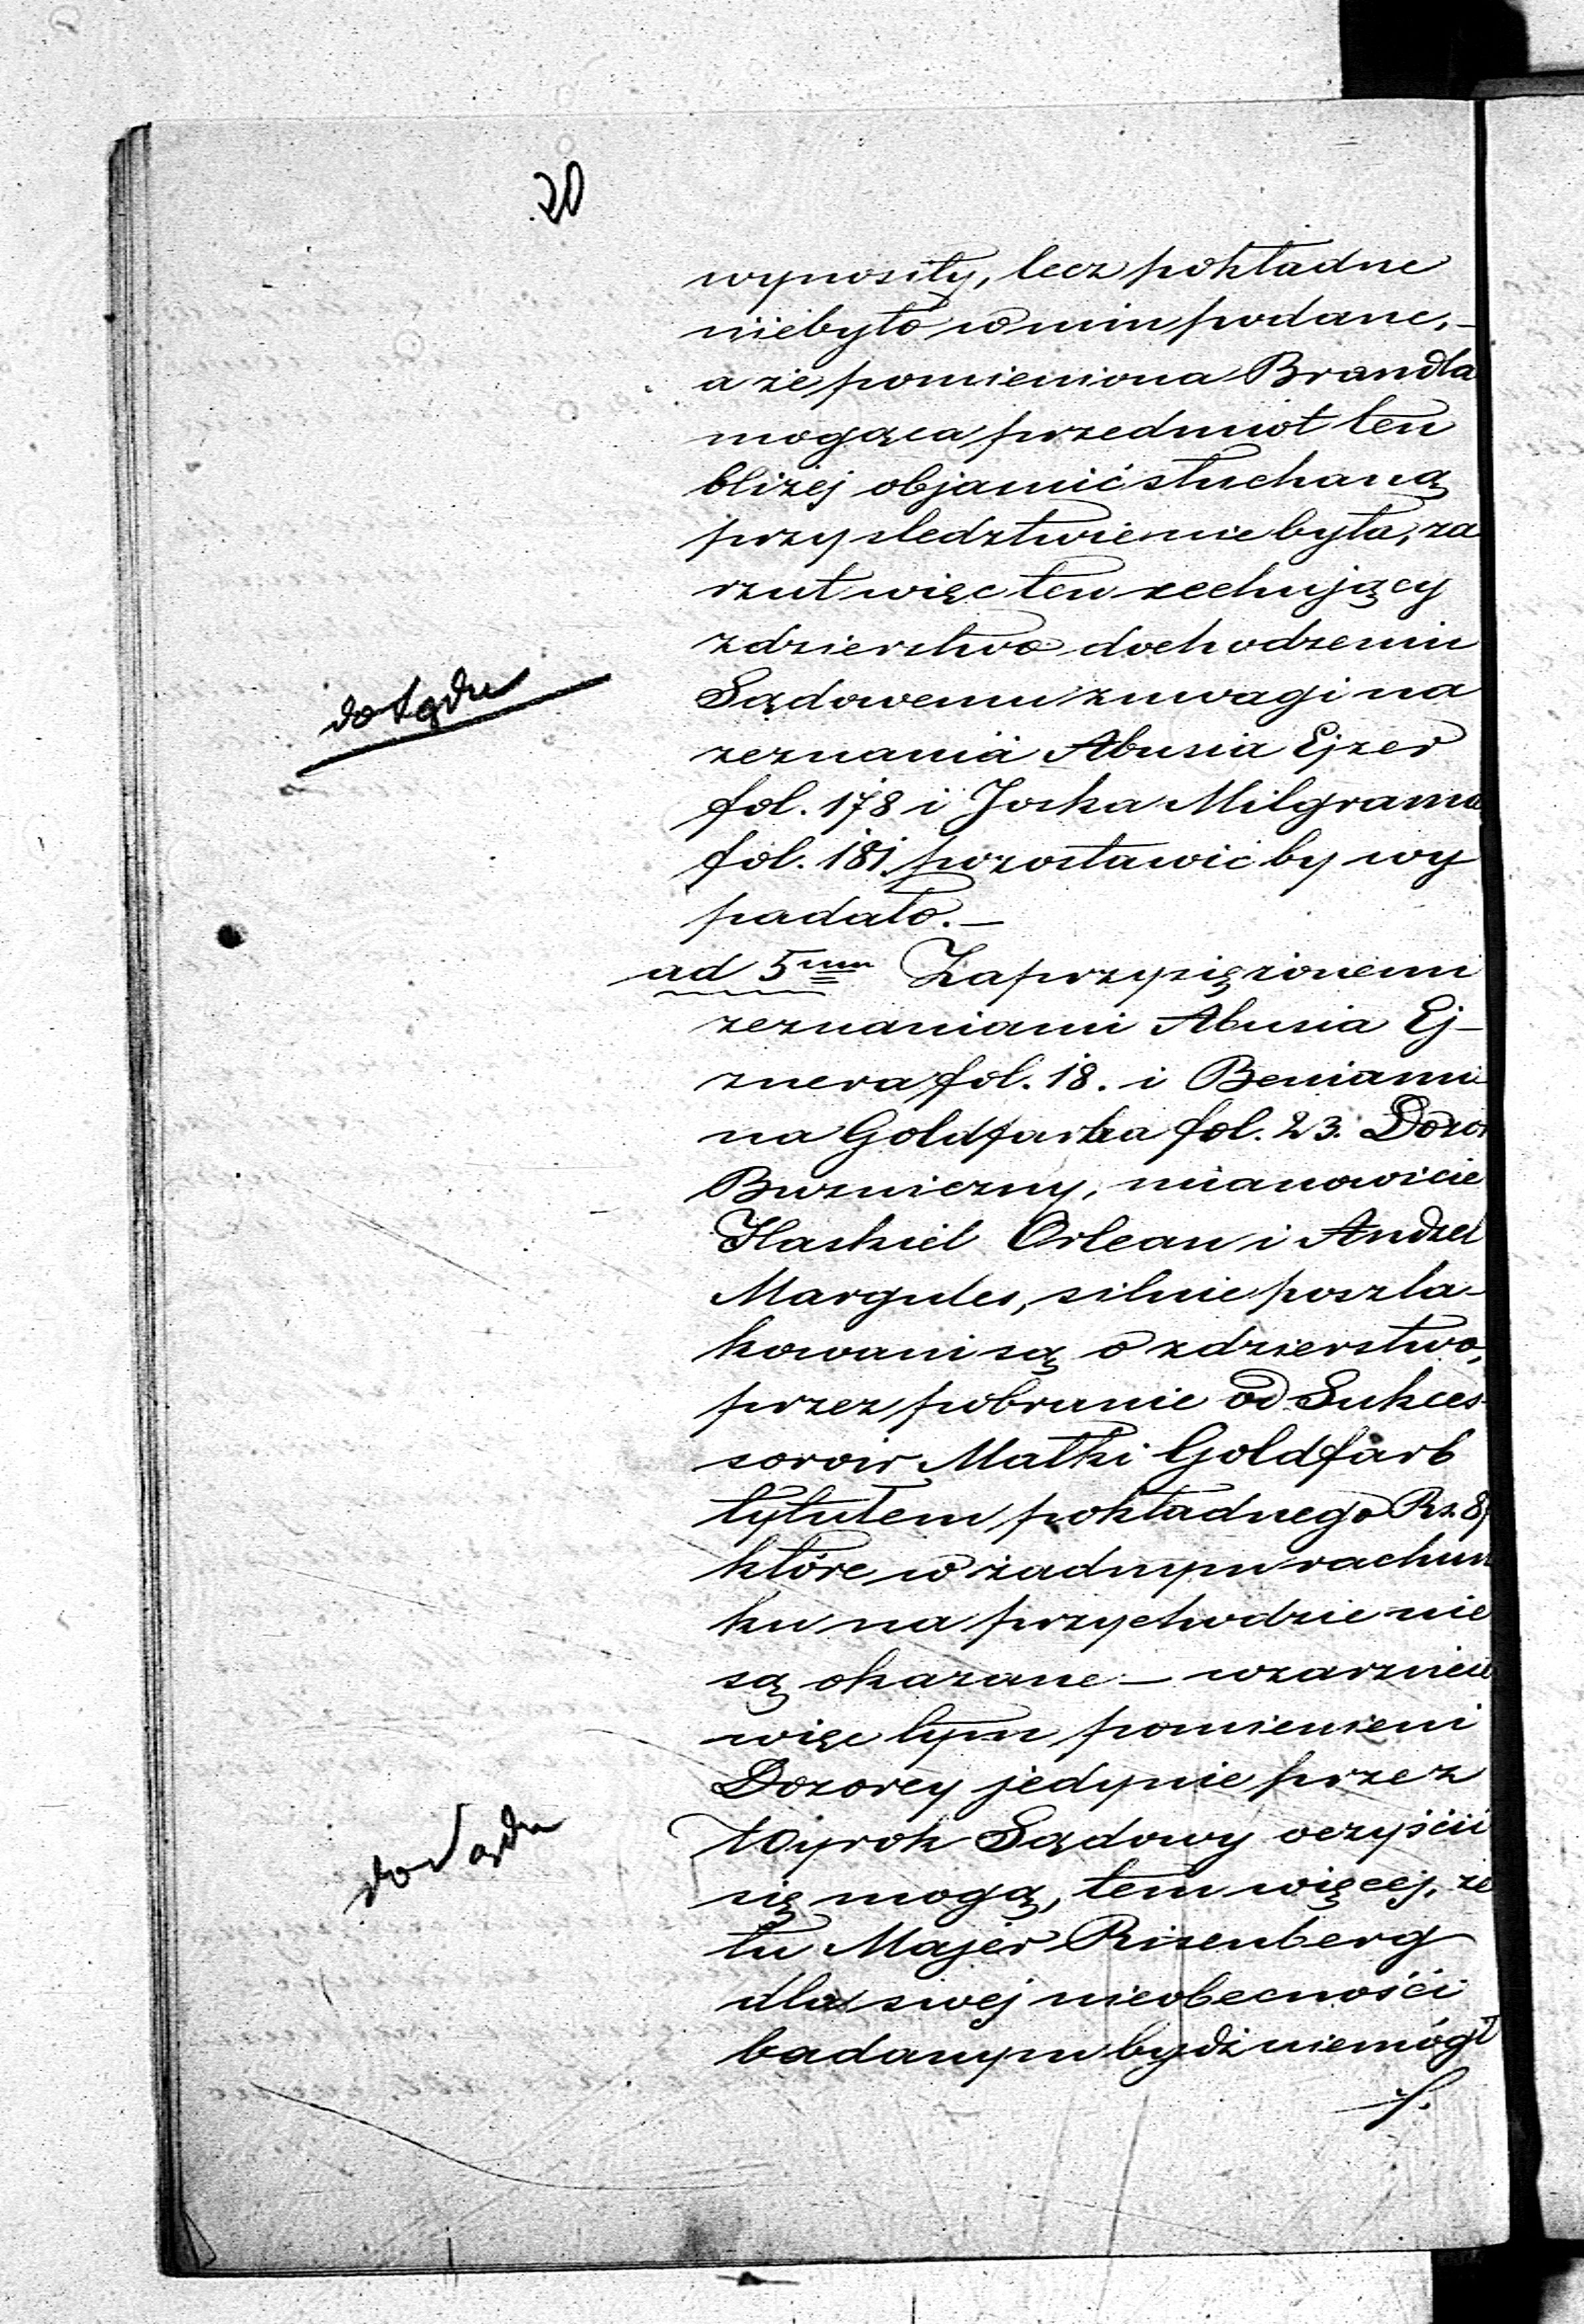 20
wynosiły, lecz pokładne
niebyło w nim podane,—
a że pomieniona Brandla
mogąca przedmiot ten
bliżej objaśnić słuchaną
przy sledztwie nie była, za
rzut więc ten cechujący
zdzierstwo dochodzeniu
Sądowemu z uwagi na
zeznania Abusia Ejzer
fol. 178 i Joska Milgrama
fol. 181. pozostawić by wy
padało.—
do Sądu
ad 5um Zaprzysiężonemi
zeznaniami Abusia Ej-
znera fol. 18. i Beniami
na Goldfarba fol. 23. Dozor
Bużniczny, mianowicie
Haskiel Orlean i Andzel
Margules, silnie poszla-
kowani są o zdzierstwo,
przez pobranie od Sukces-
sorów Małki Goldfarb
tytułem pokładnego Rs. 8,
które w żadnym rachun
ku na przychodzie nie
są okazane — w zarzucie
więc tym pomienieni
Dozorcy jedynie przez
Wyrok Sądowy oczyścić
się mogą, tem więcej, że
tu Majer Rizenberg
dla swej nieobecności
badanym bydź niemógł
do Sądu